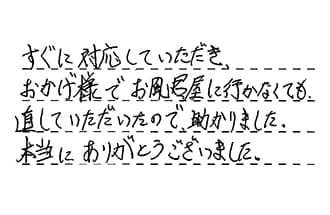 すぐに対応していただき、
おかげ様でお風呂屋に行かなくても、
直していただいたので、助かりました。
本当にありがとうございました。